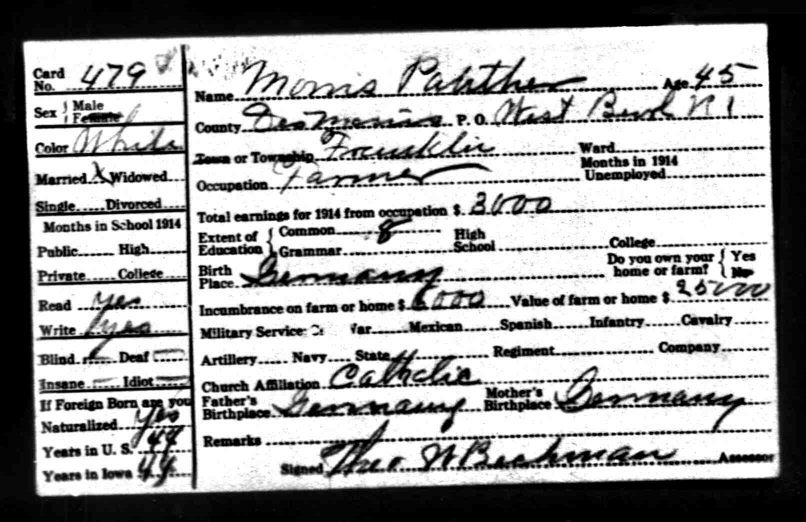 Card No. 479
Sex Male Female
Color White
Married X Widowed
Single Divorced
Months in School 1914
Public High
Private College
Read yes
Write yes
Blind Deaf
Insane Idiot
If Foreign Born are you
Naturalized Yes
Years in U. S. 44
Years in Iowa 44
Name Morris Age 45
County Des Moines P. O. West Bend R 1
Town or Township Franklin Ward
Occupation Farmer Months in 1914 Unemployed
Total earnings for 1914 from occupation $ 3000
Extent of Education Common 8 High School College
Grammar
Birth Place Germany Do you own your home or farm? Yes No
Incumbrance on farm or home $ 6000 Value of farm or home $ 25000
Military Service: War Mexican Spanish Infantry Cavalry
Artillery Navy State Regiment Company
Church Affiliation Catholic
Father's Birthplace Germany Mother's Birthplace Germany
Remarks
Signed Theo W Beckman Assessor